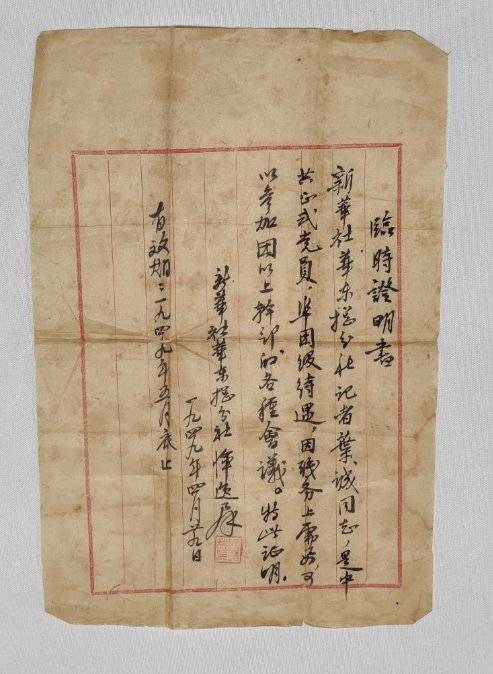 臨時證明書
新華社華东總分社记者葉誠同志,是中
共正式党员,準团级待遇,因职务上需要,可
以参加团以上幹部的各種會議。特此证明。
新華社華东總分社 恽逸群
一九四九年四月日
有效期:一九四九年五月底止